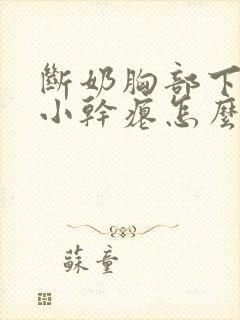 斷奶胸部下
小幹癟怎麼
蘇童